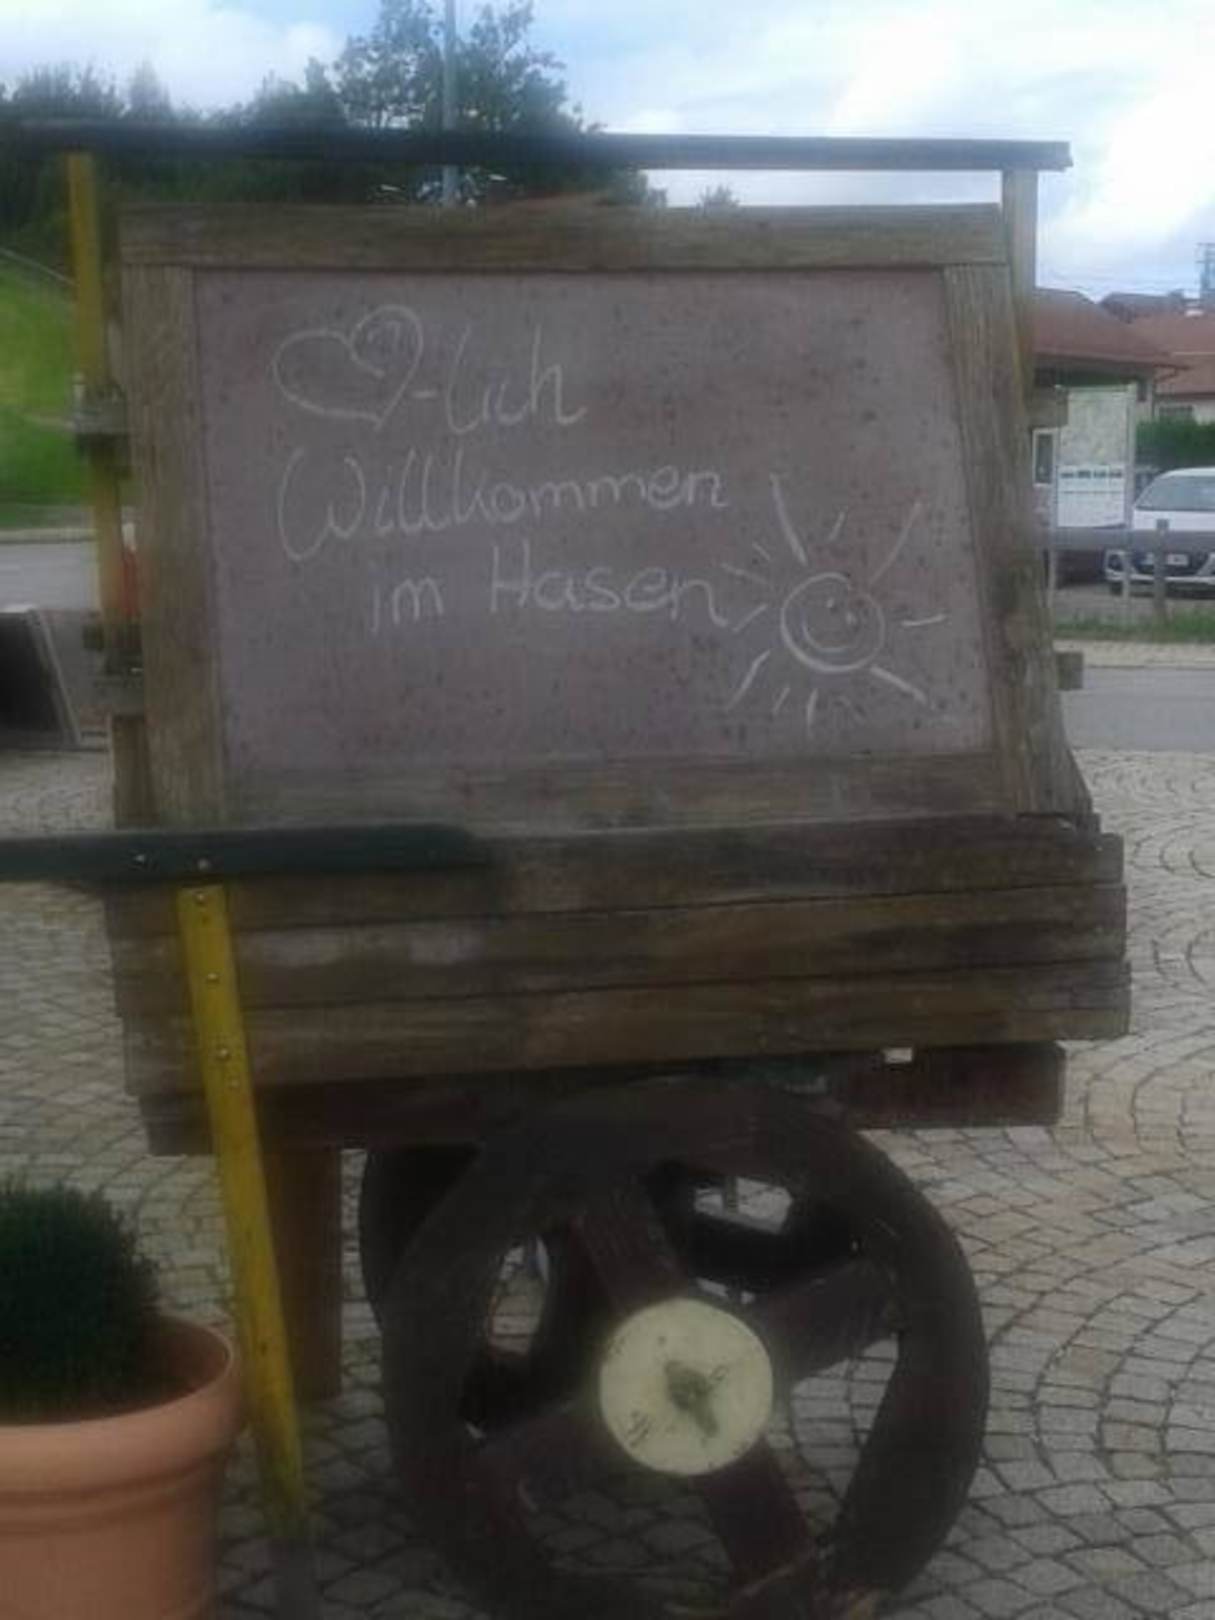 ♡-lich
Willkommen
im Hasen